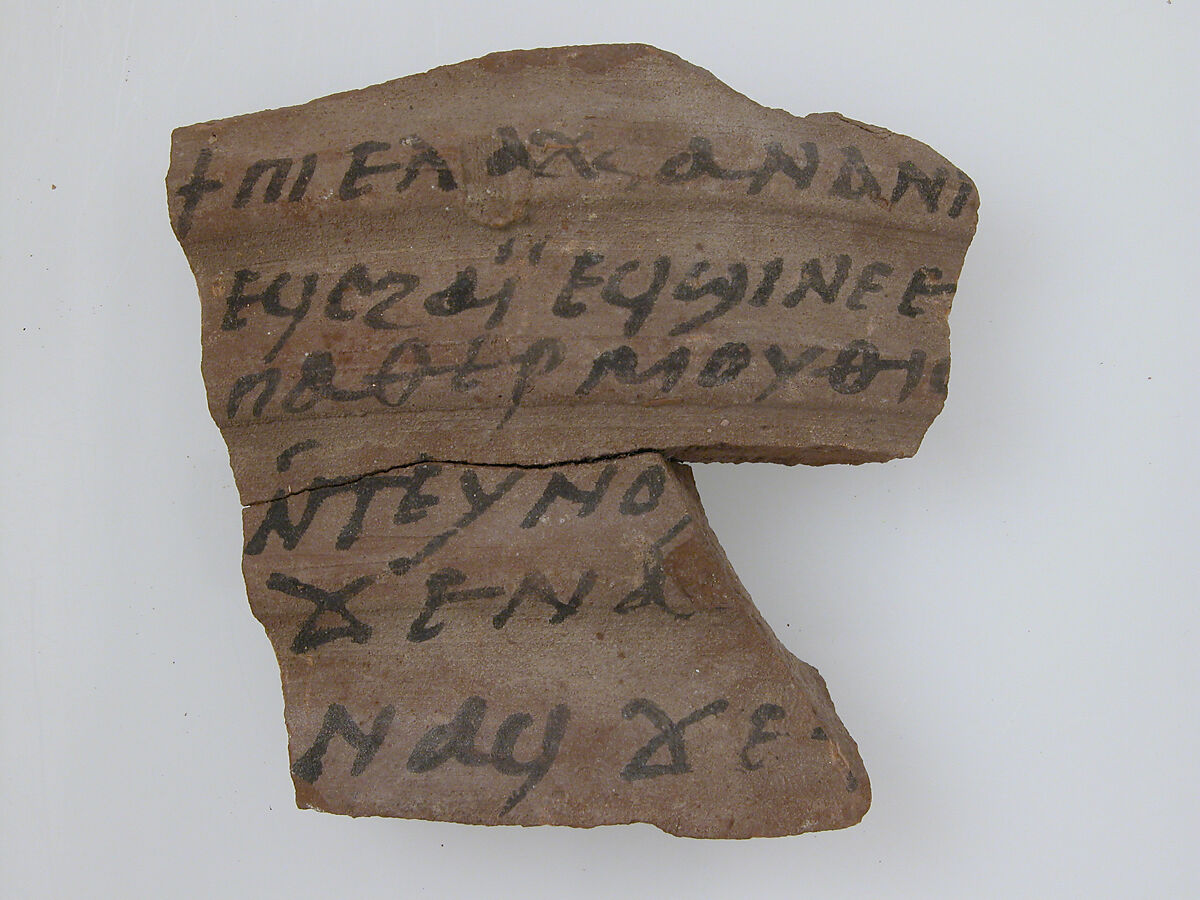 ϯ ⲡⲓⲉⲗⲁⲭⲥ ⲁⲛⲁⲛⲓ
ⲉϥⲥϩⲁï ⲉϥϣⲓⲛⲉ ⲉ
ⲡⲁⲑⲉⲣⲙⲟⲩⲑⲓ
ⲛ̄ⲧⲉⲩⲛⲟ
ϫⲉⲛⲁ
ⲛⲁϥ ϫⲉ